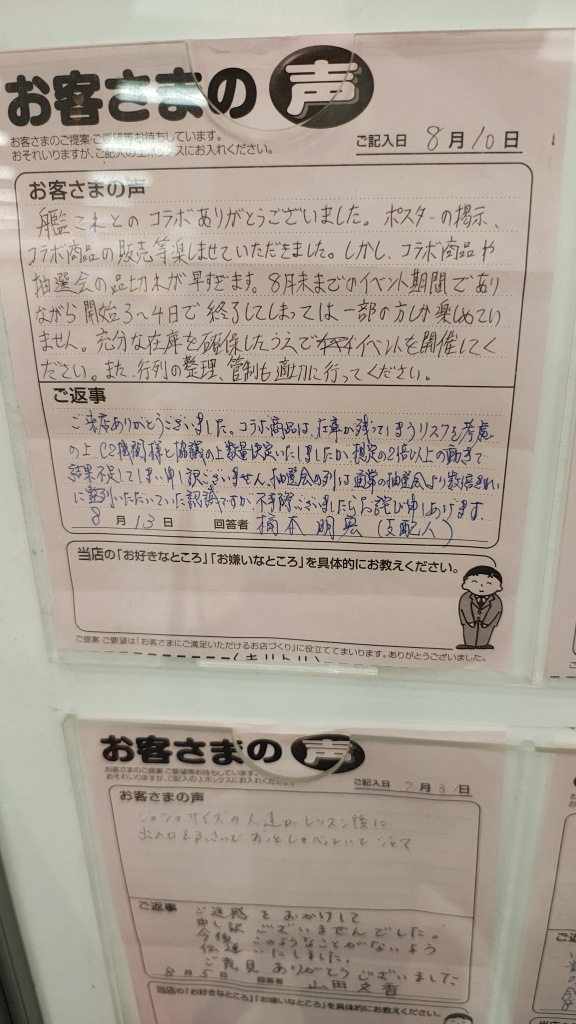 お客さまの声
お客さまのご提案・ご要望等お待ちしています。
おそれいりますが、ご記入の上ボックスにお入れください。
ご記入日 8月10日
お客さまの声
艦これとのコラボありがとうございました。ポスターの掲示、
コラボ商品の販売等楽しませていただきました。しかし、コラボ商品や
抽選会の品切れが早すぎます。8月末までのイベント期間であり
ながら開始3〜4日で終了してしまっては一部の方しか楽しめてい
ません。充分な在庫を確保したうえでイベントを開催してく
ださい。また、行列の整理、管制も適切に行ってください。
ご返事
ご来店ありがとうございました。コラボ商品は、在庫が残ってしまうリスクも考慮
の上C2機関様と協議の上数量決定いたしましたが、想定の2倍以上の動きで
結果不足してしまい申し訳ございません。抽選会の列は通常の抽選会より数倍きれい
に整列いただいていた認識ですが、不手際ございましたらお詫び申しあげます。
8月13日 回答者 橋本 朋宏(支配人)
当店の「お好きなところ」「お嫌いなところ」を具体的にお教えください。
ご提案・ご要望は「お客さまにご満足いただけるお店づくり」に役立ててまいります。ありがとうございました。
(キリトリ)
お客さまの声
お客さまのご提案・ご要望等お待ちしています。
おそれいりますが、ご記入の上ボックスにお入れください。
ご記入日 7月31日
お客さまの声
の人達がレッスン後に
ご返事
ご迷惑をおかけして
申し訳ございませんでした。
今後このようなことがないよう
伝達いたしました。
ご意見ありがとうございました
8月5日 回答者 山田文香
当店の「お好きなところ」「お嫌いなところ」を具体的にお教えください。